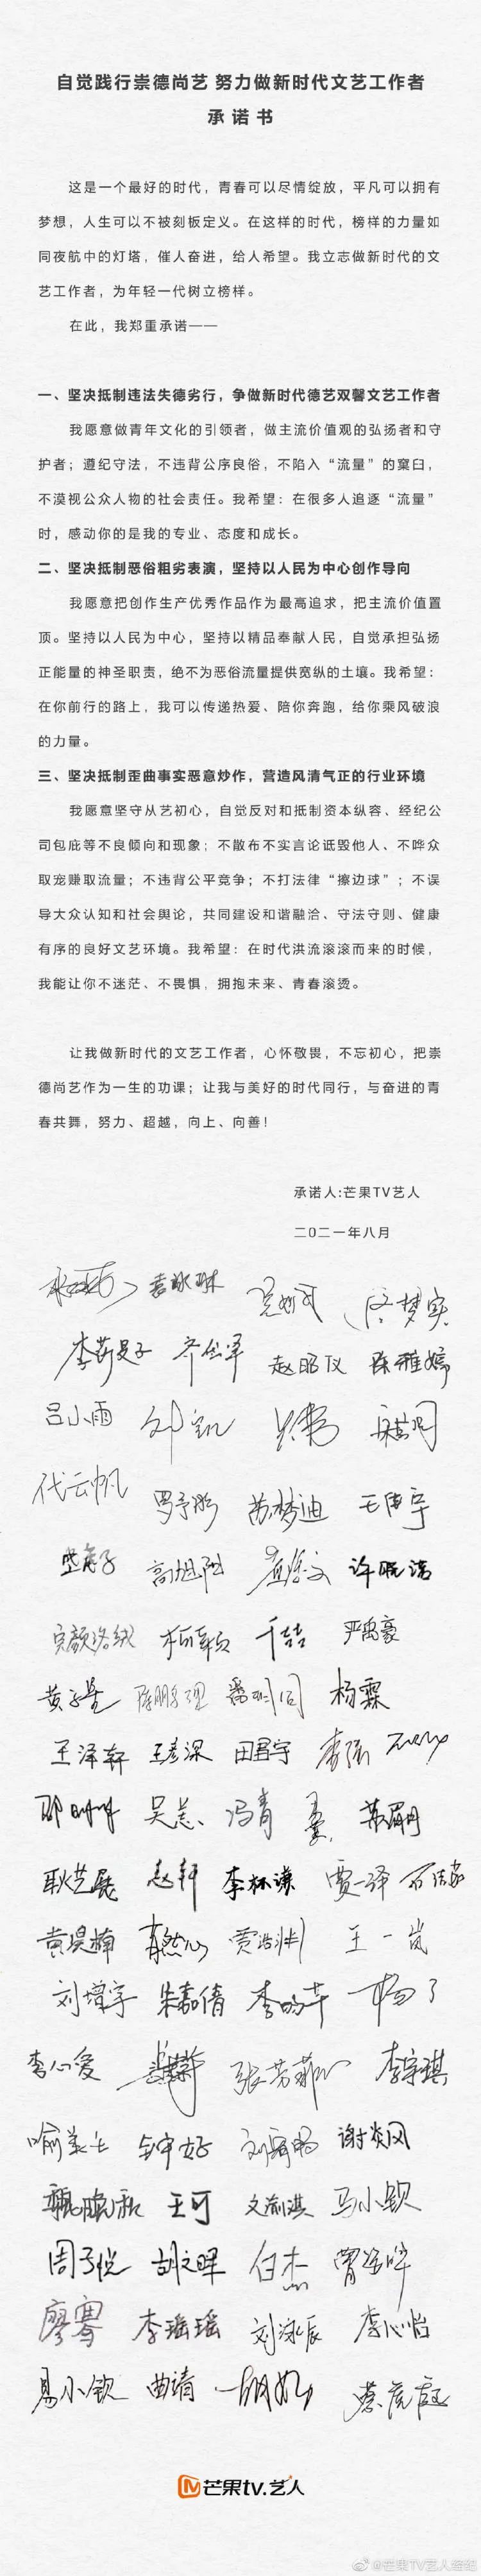 自觉践行崇德尚艺 努力做新时代文艺工作者
承 诺 书
这是一个最好的时代，青春可以尽情绽放，平凡可以拥有
梦想，人生可以不被刻板定义。在这样的时代，榜样的力量如
同夜航中的灯塔，催人奋进，给人希望。我立志做新时代的文
艺工作者，为年轻一代树立榜样。
在此，我郑重承诺——
一、坚决抵制违法失德劣行，争做新时代德艺双馨文艺工作者
我愿意做青年文化的引领者，做主流价值观的弘扬者和守
护者；遵纪守法，不违背公序良俗，不陷入“流量”的窠臼，
不漠视公众人物的社会责任。我希望：在很多人追逐“流量”
时，感动你的是我的专业、态度和成长。
二、坚决抵制恶俗粗劣表演，坚持以人民为中心创作导向
我愿意把创作生产优秀作品作为最高追求，把主流价值置
顶。坚持以人民为中心，坚持以精品奉献人民，自觉承担弘扬
正能量的神圣职责，绝不为恶俗流量提供宽纵的土壤。我希望：
在你前行的路上，我可以传递热爱、陪你奔跑，给你乘风破浪
的力量。
三、坚决抵制歪曲事实恶意炒作，营造风清气正的行业环境
我愿意坚守从艺初心，自觉反对和抵制资本纵容、经纪公
司包庇等不良倾向和现象；不散布不实言论诋毁他人、不哗众
取宠赚取流量；不违背公平竞争；不打法律“擦边球”；不误
导大众认知和社会舆论，共同建设和谐融洽、守法守则、健康
有序的良好文艺环境。我希望：在时代洪流滚滚而来的时候，
我能让你不迷茫、不畏惧，拥抱未来、青春滚烫。
让我做新时代的文艺工作者，心怀敬畏，不忘初心，把崇
德尚艺作为一生的功课；让我与美好的时代同行，与奋进的青
春共舞，努力、超越，向上、向善！
承诺人:芒果TV艺人
二〇二一年八月
袁咏琳
佟梦实
赵昭仪 陈雅婷
吕小雨
代云帆
罗予彤 苏梦迪 王倩宇
高旭阳 许晓诺
完颜洛绒 千喆 严禹豪
杨霖
王泽轩 王彦深 田君宇
吴恙 冯青
耿艺展 赵轩 李怀谦 贾一译
王一岚
刘增宇 朱嘉倩
李心爱 李宇琪
钟好 谢炎风
王可 马小钦
周子悦 胡文晖 白杰
廖骞 李瑶瑶 刘泳辰 李心怡
易小钦 曲靖
芒果tv.艺人
@芒果TV艺人经纪